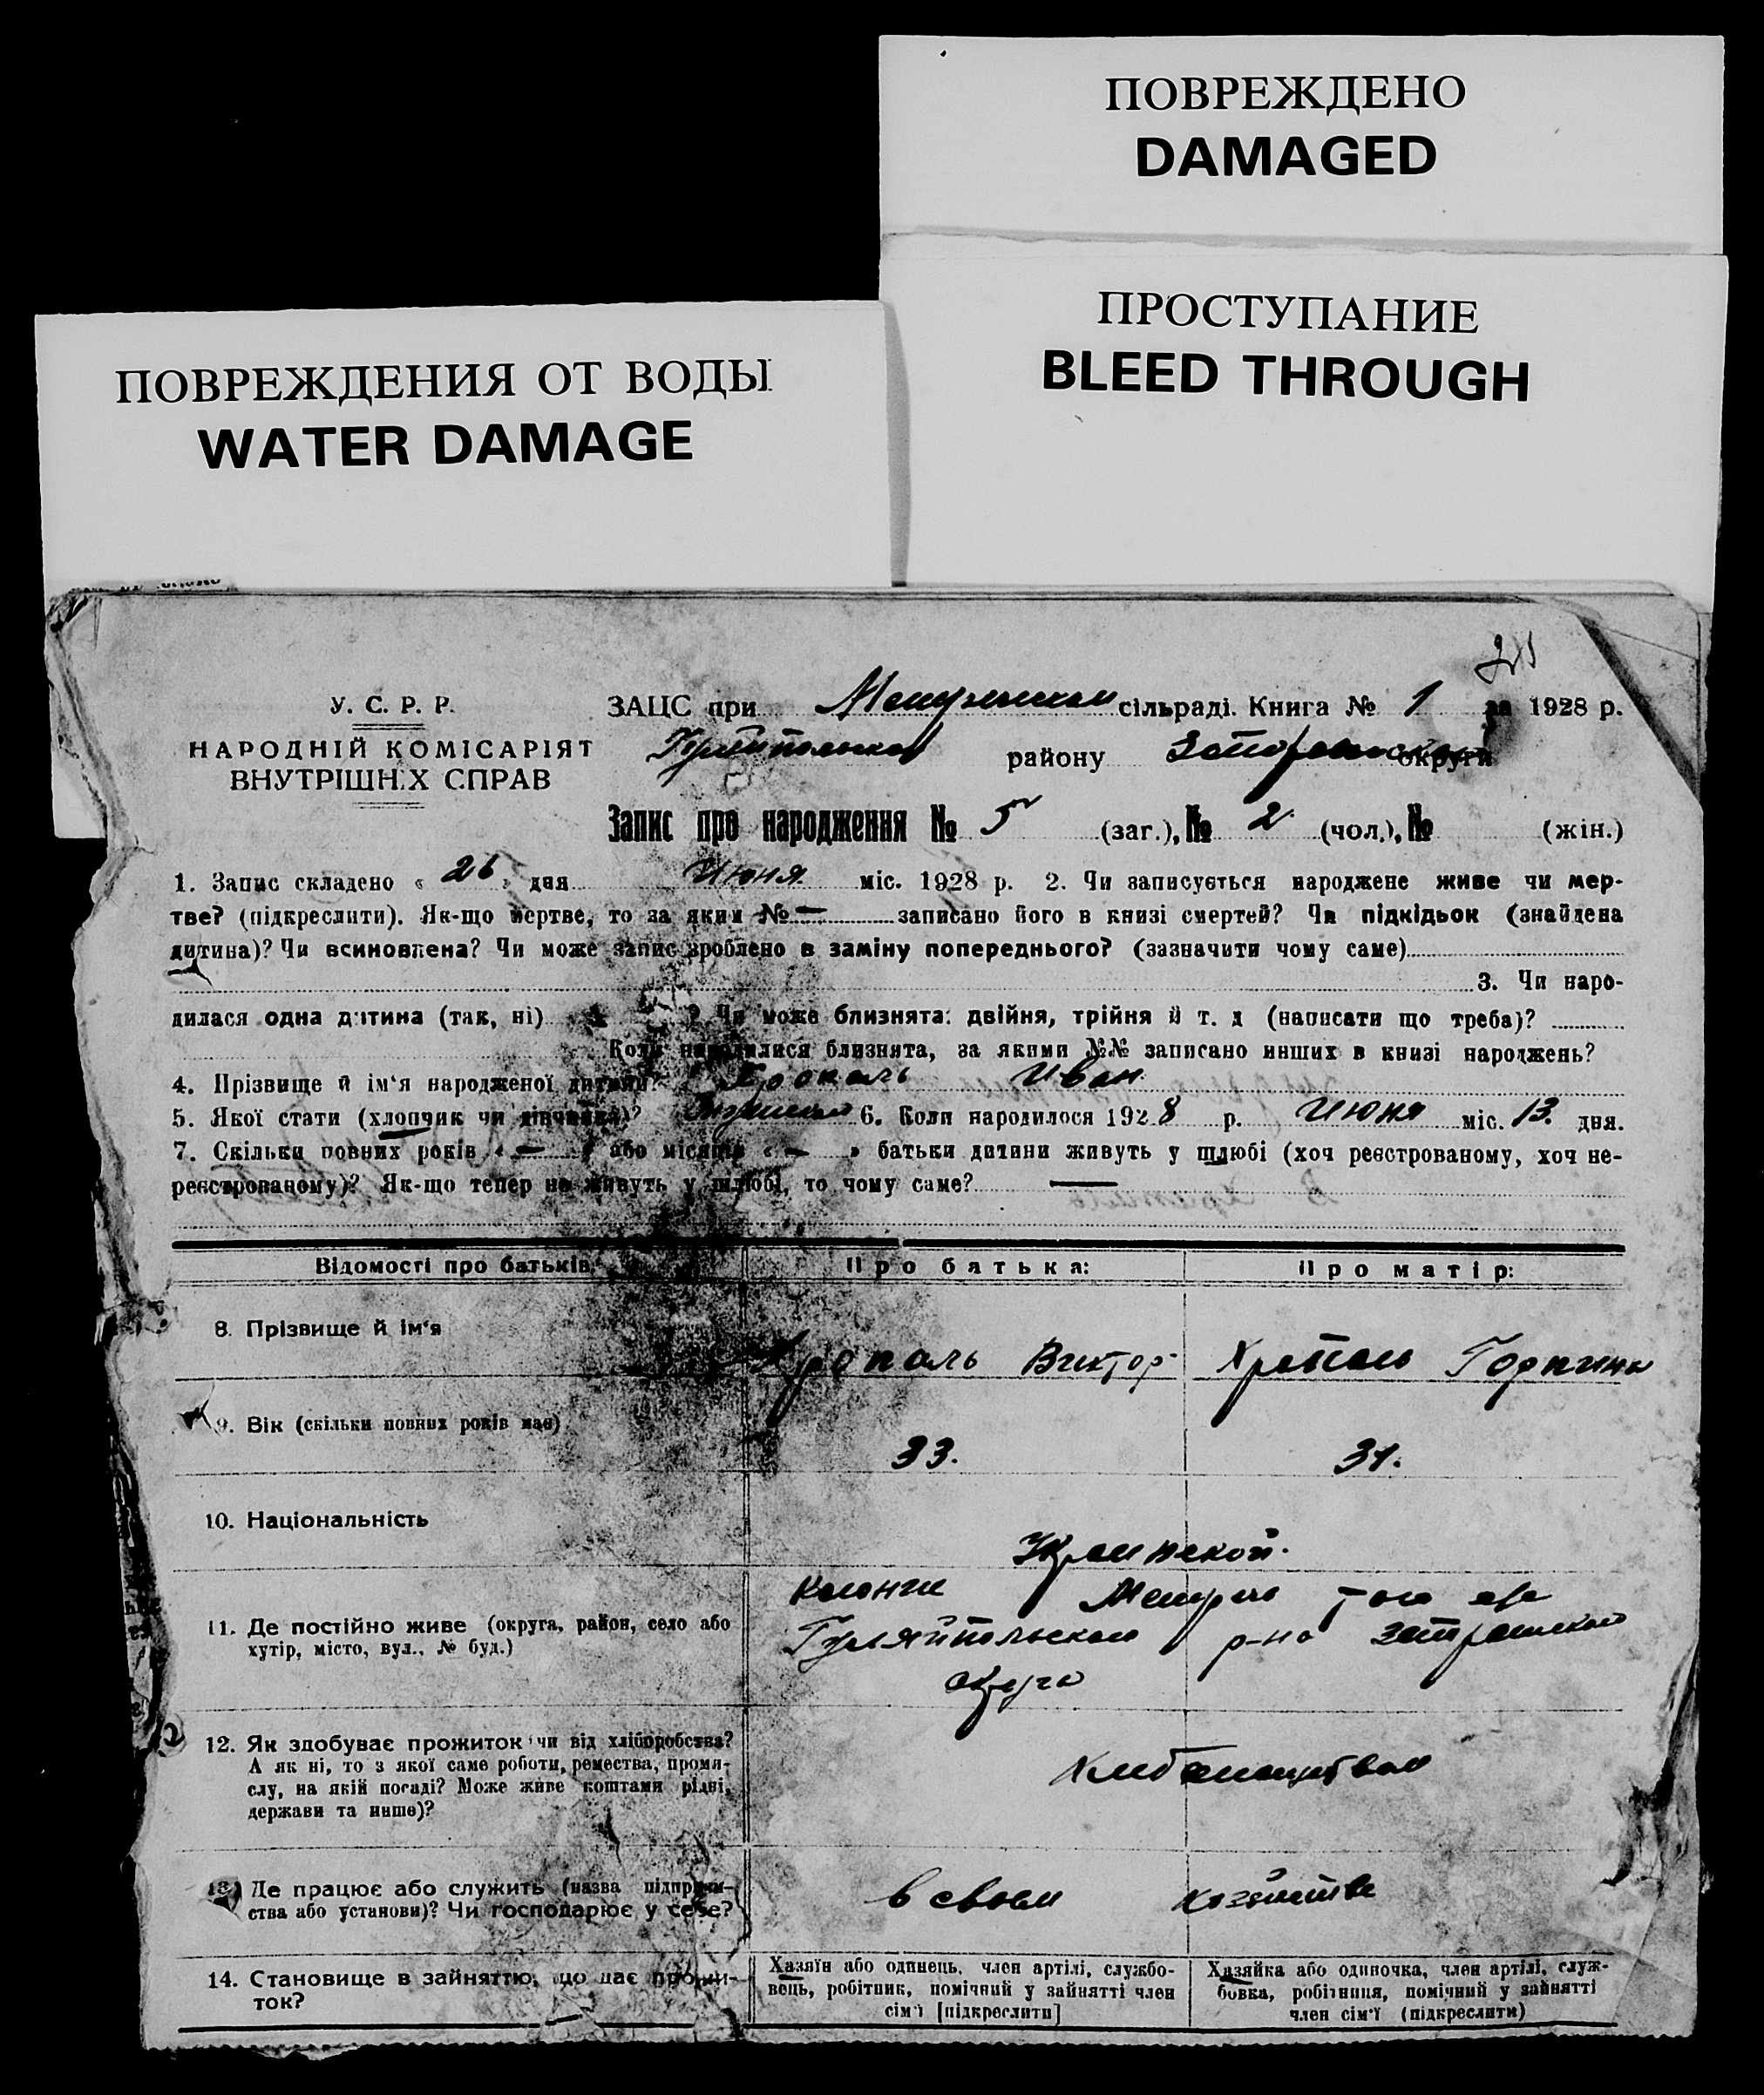 ПОВРЕЖДЕНО
DAMAGED
ПРОСТУПАНИЕ
BLEED THROUGH
ПОВРЕЖДЕНИЯ ОТ ВОДЫ
WATER DAMAGE
У. С. Р. Р.
НАРОДНІЙ КОМІСАРІЯТ
ВНУТРІШНІХ СПРАВ
ЗАЦС при сільраді. Книга № 1 за 1928 р.
району округи
Запис про народження № 5 (заг.), № 2 (чол.), № (жін.)
1. Запис складено « 26 » дня Июня міс. 1928 р. 2. Чи записується народжене живе чи мер-
тве? (підкреслити). Як-що мертве, то за яким № — записано його в книзі смертей? Чи підкідьок (знайдена
дитина)? Чи всиновлена? Чи може запис зроблено в заміну попереднього? (зазначити чому саме)
3. Чи наро-
дилася одна дитина (так, ні) ? Чи може близнята: двійня, трійня й т. д (написати що треба)?
Коли народилися близнята, за якими №№ записано инших в книзі народжень?
4. Прізвище й ім'я народженої дитини? Хропаль Иван
5. Якої стати (хлопчик чи дівчинка)? 6. Коли народилося 1928 р. Июня міс. 13. дня.
7. Скільки повних років « — » або місяців « — » батьки дитини живуть у шлюбі (хоч реєстрованому, хоч не-
реєстрованому)? Як-що тепер не живуть у шлюбі, то чому саме? —
Відомості про батьків. Про батька: Про матір:
8. Прізвище й ім'я Хропаль Виктор Хропаль Горпина
9. Вік (скільки повних років має) 33. 31.
10. Національність
11. Де постійно живе (округа, район, село або
хутір, місто, вул., № буд.) Гуляйпольского р-на
12. Як здобуває прожиток чи від хліборобства?
А як ні, то з якої саме роботи, ремества, проми-
слу, на якій посаді? Може живе коштами рідні,
держави та инше)?
13. Де працює або служить (назва підприєм-
ства або установи)? Чи господарює у себе? в своем хозяйстве
14. Становище в зайняттю, що дає прожи-
ток?
Хазяїн або одинець, член артілі, службо-
вець, робітник, помічний у зайнятті член
сім'ї [підкреслити]
Хазяйка або одиночка, член артілі, служ-
бовка, робітниця, помічний у зайнятті
член сім'ї (підкреслити)